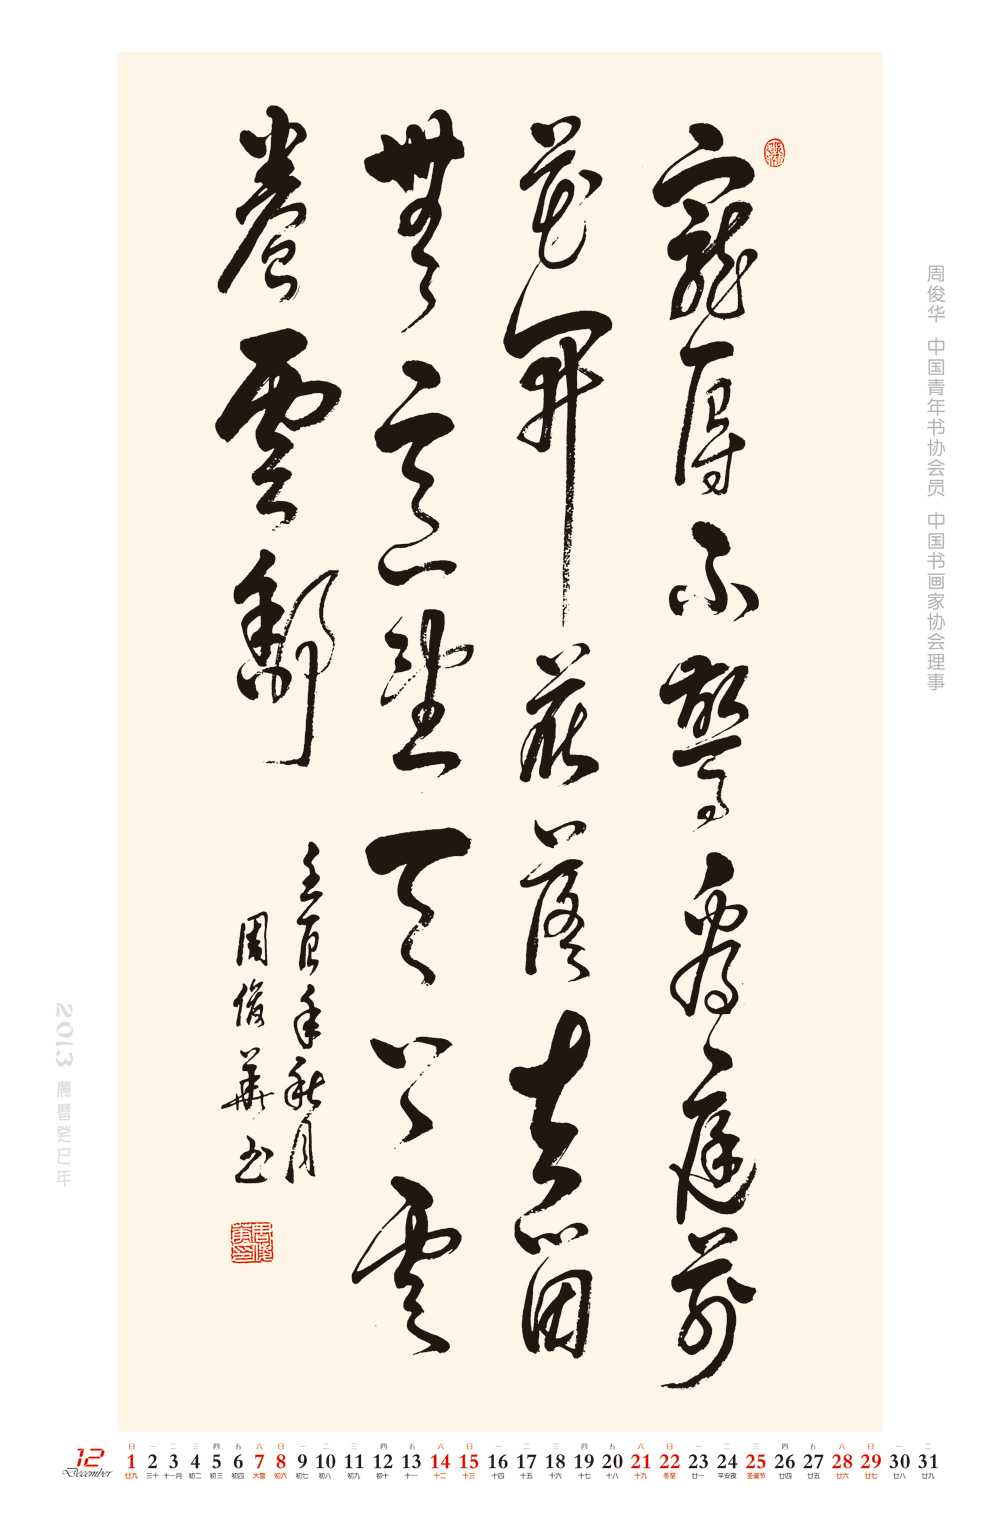 寵辱不驚看庭前
花開花落去留
無意望天上雲
卷雲舒
壬辰年秋月
周俊華書
周俊华 中国青年书协会员 中国书画家协会理事
2013 農曆癸巳年
12
December
日 一 二 三 四 五 六 日 一 二 三 四 五 六 日 一 二 三 四 五 六 日 一 二 三 四 五 六 日 一 二
1 2 3 4 5 6 7 8 9 10 11 12 13 14 15 16 17 18 19 20 21 22 23 24 25 26 27 28 29 30 31
廿九 三十 十一月 初二 初三 初四 大雪 初六 初七 初八 初九 初十 十一 十二 十三 十四 十五 十六 十七 十八 十九 冬至 廿一 平安夜 圣诞节 廿四 廿五 廿六 廿七 廿八 廿九